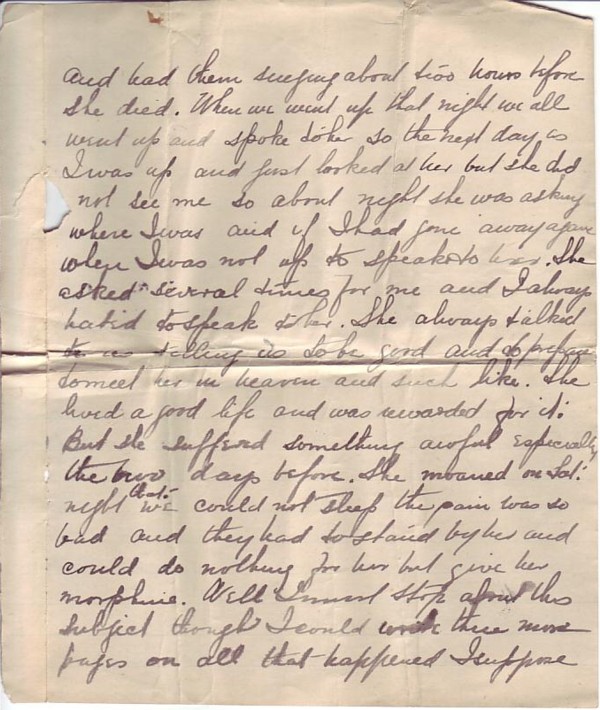 and had them singing about two hours before
she died. When we went up that night we all
went up and spoke to her so the next day as
I was up and just looked at her but she did
not see me so about night she was asking
where I was and if I had gone away again
when I was not up to speak to her. She
asked several times for me and I always
hated to speak to her. She always talked
to us telling us to be good and to prepare
to meet her in heaven and such like. She
lived a good life and was rewarded for it.
But she suffered something awful especially
the two days before. She moaned on Sat.
night that we could not sleep the pain was so
bad and they had to stand by her and
could do nothing for her but give her
morphine. Well I must stop about this
subject though I could write three more
pages on all that happened I suppose